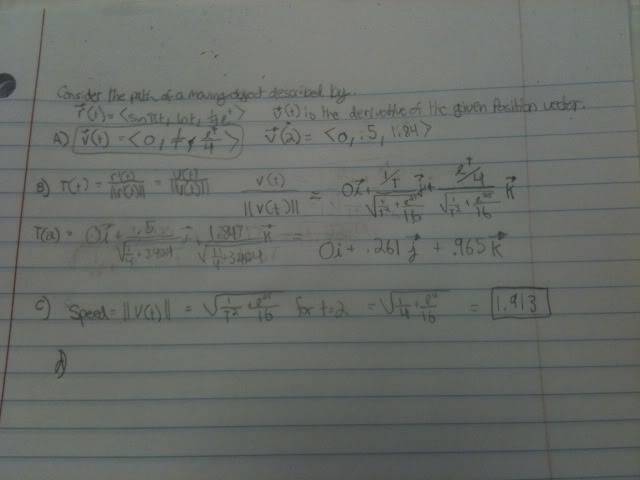 Consider the path of a moving object described by.
r⃗(t) = <sinπt, lnt, ¼e^t> v⃗(t) is the derivative of the given position vector.
A) v⃗(t) = <0, 1/t, e^t/4> v⃗(2) = <0, .5, 1.84>
B) T(t) = r'(t)/||r'(t)|| = v(t)/||v(t)|| v(t)/||v(t)|| = 0i⃗ + (1/t)/√(1/t² + e^2t/16) j⃗ + (e^t/4)/√(1/t² + e^2t/16) k⃗
T(2) = 0i⃗ + .5/√(¼+3.404) j⃗ + 1.847/√(¼+3.404) k⃗ = 0i + .261j⃗ + .965k⃗
c) Speed = ||v(t)|| = √(1/t² + e^2t/16) for t=2 = √(1/4 + e⁴/16) = 1.913
d)